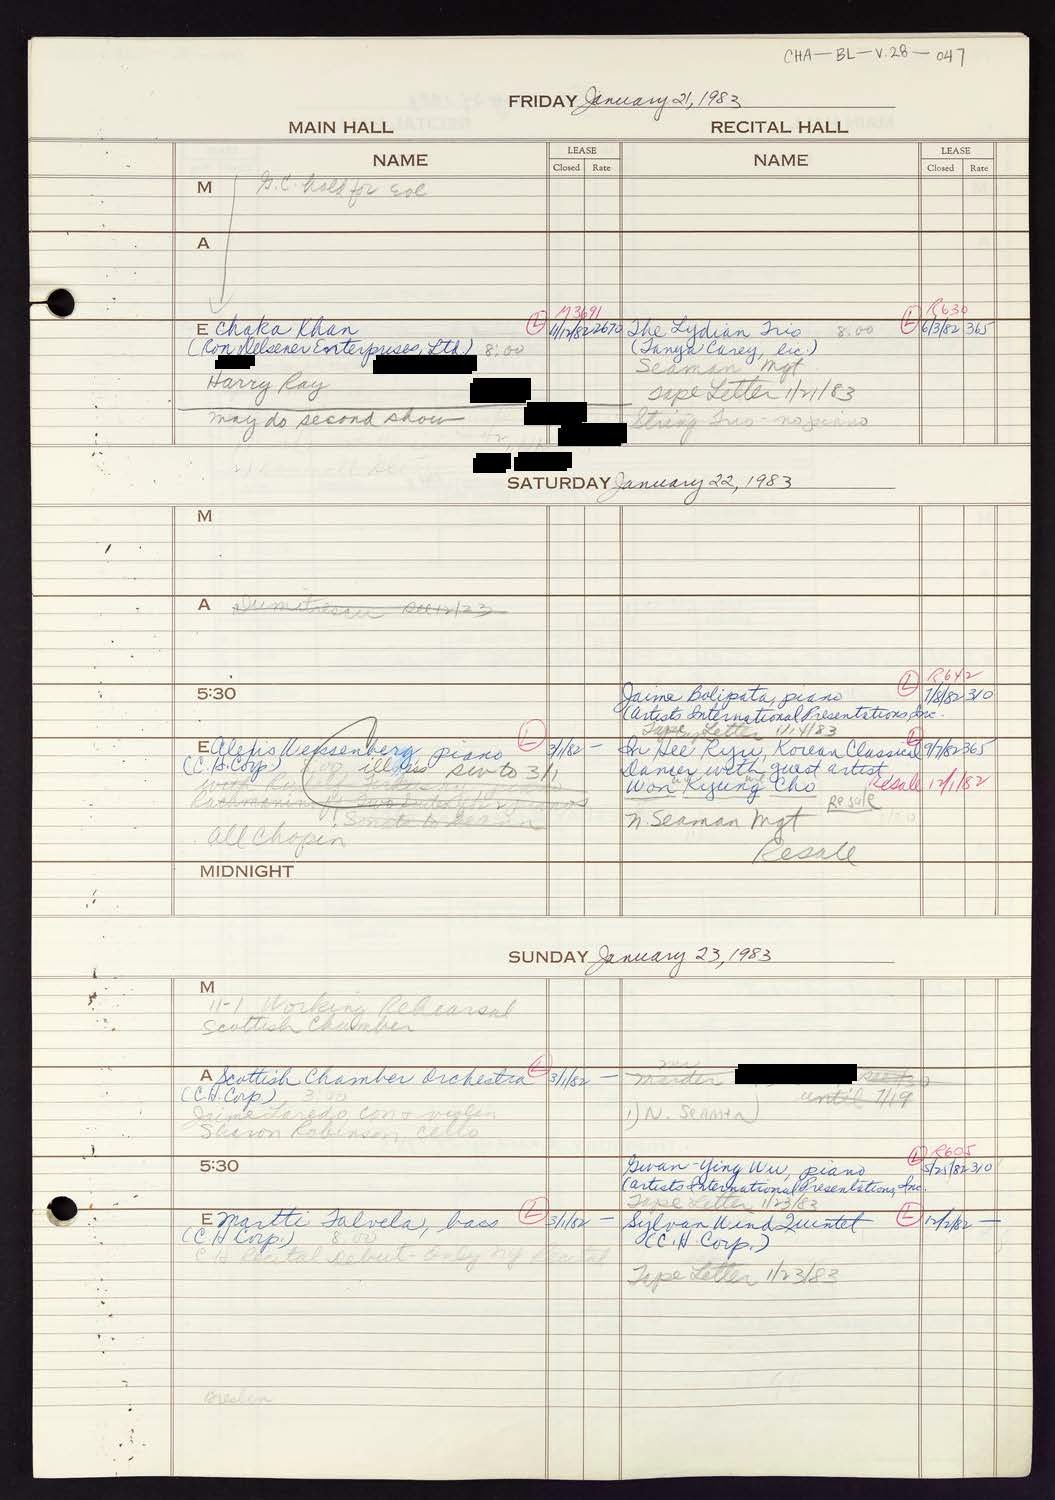 CHA-BL-V.28-047
FRIDAY January 21, 1983
MAIN HALL RECITAL HALL
NAME LEASE NAME LEASE
Closed Rate Closed Rate
M G.C. hold for
A
M3691 R630
E Chaka Khan L 11/12/82 2670 The Lydian Trio 8:00 L 6/3/82 365
(Ron Delsener Enterprises, Ltd.) 8:00 (Tanya Carey, lic.)
Seaman Mgt
Harry Ray Tape Letter 1/21/83
May do second show String Trio - no piano
SATURDAY January 22, 1983
M
A Dumitrescu see 12/23
R642
5:30 Jaime Bolipata, piano L 7/8/82 310
(Artists International Presentations, Inc.
Tape Letter 1/14/83
E Alexis Weissenberg, piano L 3/1/82 - In Hee Ryu, Korean Classical L 9/7/82 365
(C.H. Corp.) 8:00 illness rev to 3/1 Dancer with guest artist
with Won Kyung Cho Resale 12/1/82
Rachmaninoff Two Suites for 2 pianos Resale
Sonata N. Seaman Mgt
All Chopin Resale
MIDNIGHT
SUNDAY January 23, 1983
M
11-1 Working Rehearsal
Scottish Chamber
A Scottish Chamber Orchestra L 3/1/82 - Marder
(C.H. Corp.) 3:00 until 7/19
Jaime Laredo, con & violin 1) N. SEAMAN
Sharon Robinson, cello
R605
5:30 Gwan-Ying Wu, piano L 5/25/82 310
(Artists International Presentations, Inc.
Tape Letter 1/23/83
E Martti Talvela, bass L 3/1/82 - Sylvan Wind Quintet L 12/2/82 -
(C.H. Corp.) 8:00 (C.H. Corp.)
CH Recital Debut - only NY Recital
Tape Letter 1/23/83
Breslin